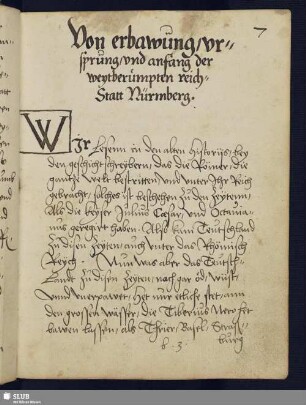 7
Von erbawüng/vr=
sprüng/vnd anfang der
weytberümpten reich=
Statt Nürmberg.
Wir Lesenn in den alten Historijs/bey
den geschicht schreybern/das die Römer/die
gantze Welt bestritten vnd vnter Ihr Reich
gebracht/solches ist beschehen zu den Zeytenn/
Als die keyser Julius Cæsar/vnd Octauia=
nus geregirt haben. Also kam Teutschland
Zu disen Zeyten/auch vnter das Rhömisch
Reych. Nun was aber das Teutsch=
Landt Zu disen Zeyten/noch gar öd/wüst/
Vnnd vnerpawet/Het nur etliche stet/ann
den grossen Wasser/die Tiberius Nero het
bawen lassen/als Thrier/Basel/Straß=
b 3
burg
SLUB